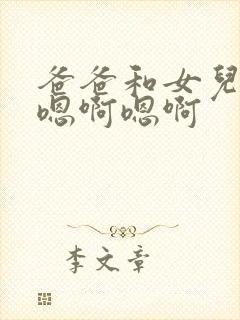 爸爸和女兒
嗯啊嗯啊
李文章